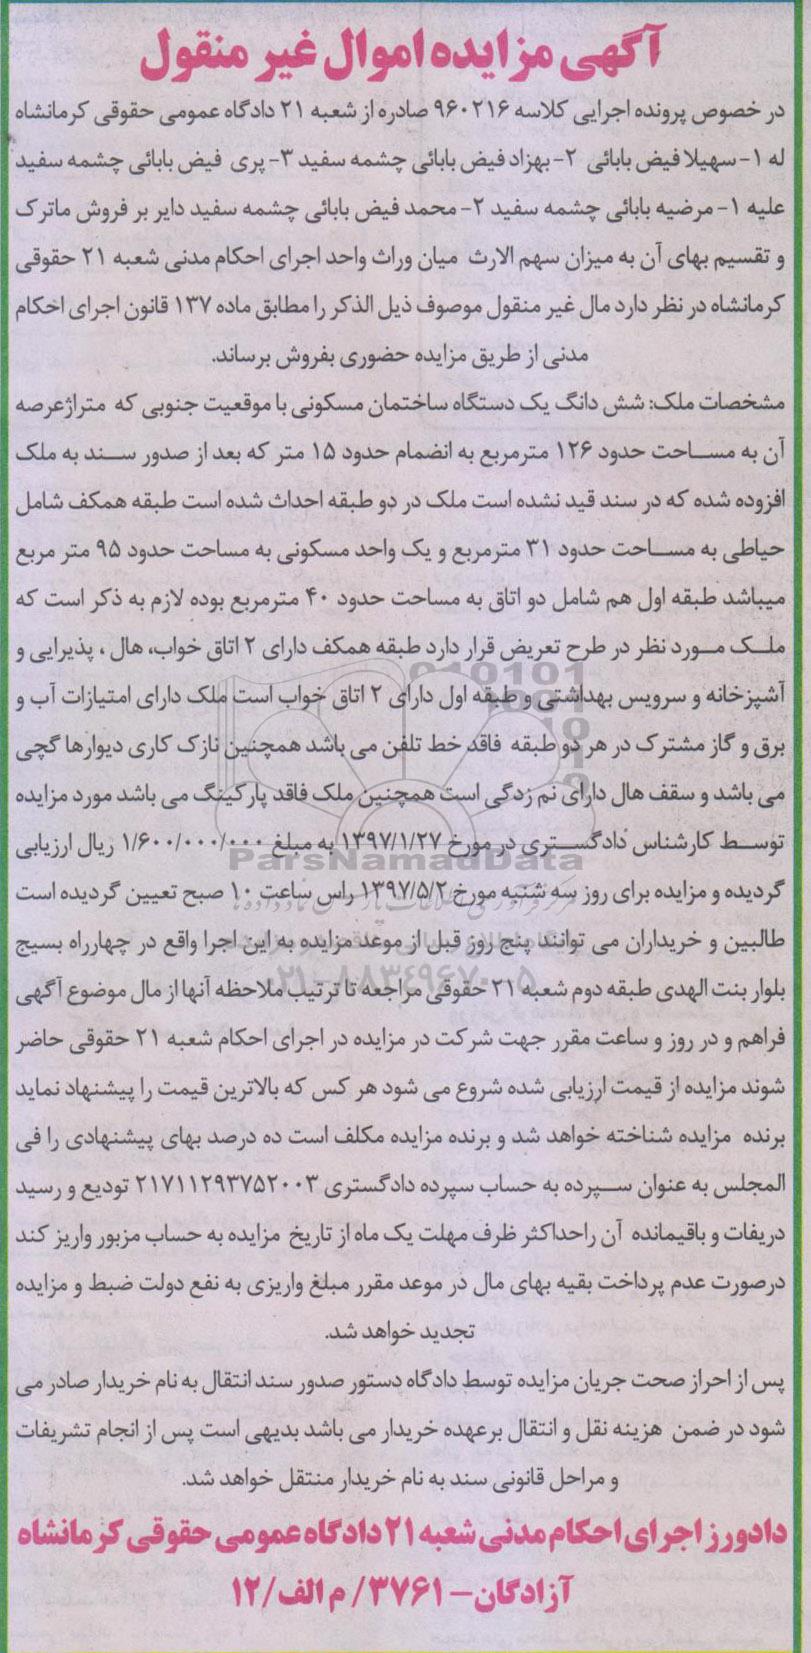 آگهی مزایده اموال غیر منقول
در خصوص پرونده اجرایی کلاسه ۹۶۰۲۱۶ صادره از شعبه ۲۱ دادگاه عمومی حقوقی کرمانشاه
له ۱- سهیلا فیض بابائی ۲- بهزاد فیض بابائی چشمه سفید ۳- پری فیض بابائی چشمه سفید
علیه ۱- مرضیه بابائی چشمه سفید ۲- محمد فیض بابائی چشمه سفید دایر بر فروش ماترک
و تقسیم بهای آن به میزان سهم الارث میان وراث واحد اجرای احکام مدنی شعبه ۲۱ حقوقی
کرمانشاه در نظر دارد مال غیر منقول موصوف ذیل الذکر را مطابق ماده ۱۳۷ قانون اجرای اخکام
مدنی از طریق مزایده حضوری بفروش برساند.
مشخصات ملک: شش دانگ یک دستگاه ساختمان مسکونی با موقعیت جنوبی که متراژعرصه
آن به مساحت حدود ۱۲۶ مترمربع به انضمام حدود ۱۵ متر که بعد از صدور سند به ملک
افزوده شده که در سند قید نشده است ملک در دو طبقه احداث شده است طبقه همکف شامل
حیاطی به مساحت حدود ۳۱ مترمربع و یک واحد مسکونی به مساحت حدود ۹۵ متر مربع
میباشد طبقه اول هم شامل دو اتاق به مساحت حدود ۴۰ مترمربع بوده لازم به ذکر است که
ملک مورد نظر در طرح تعریض قرار دارد طبقه همکف دارای ۲ اتاق خواب، هال ، پذیرایی و
آشپزخانه و سرویس بهداشتی و طبقه اول دارای ۲ اتاق خواب است ملک دارای امتیازات آب و
برق و گاز مشترک در هر دو طبقه فاقد خط تلفن می باشد همچنین نازک کاری دیوارها گچی
می باشد و سقف هال دارای نم زدگی است همچنین ملک فاقد پارکینگ می باشد مورد مزایده
توسط کارشناس دادگستری در مورخ ۱۳۹۷/۱/۲۷ به مبلغ ۱/۶۰۰/۰۰۰/۰۰۰ ریال ارزیابی
ParsNamadData
گردیده و مزایده برای روز سه شنبه مورخ ۱۳۹۷/۵/۲ راس ساعت ۱۰ صبح تعیین گردیده است
طالبین و خریداران می توانند پنج روز قبل از موعد مزایده به این اجرا واقع در چهارراه بسیج
۰۲۱-۸۸۳۴۹۶۷۰-۵
بلوار بنت الهدی طبقه دوم شعبه ۲۱ حقوقی مراجعه تا ترتیب ملاحظه آنها از مال موضوع آگهی
فراهم و در روز و ساعت مقرر جهت شرکت در مزایده در اجرای احکام شعبه ۲۱ حقوقی حاضر
شوند مزایده از قیمت ارزیابی شده شروع می شود هر کس که بالاترین قیمت را پیشنهاد نماید
برنده مزایده شناخته خواهد شد و برنده مزایده مکلف است ده درصد بهای پیشنهادی را فی
المجلس به عنوان سپرده به حساب سپرده دادگستری ۲۱۷۱۱۲۹۳۷۵۲۰۰۳ تودیع و رسید
دریفات و باقیمانده آن راحداکثر ظرف مهلت یک ماه از تاریخ مزایده به حساب مزبور واریز کند
درصورت عدم پرداخت بقیه بهای مال در موعد مقرر مبلغ واریزی به نفع دولت ضبط و مزایده
تجدید خواهد شد.
پس از احراز صحت جریان مزایده توسط دادگاه دستور صدور سند انتقال به نام خریدار صادر می
شود در ضمن هزینه نقل و انتقال برعهده خریدار می باشد بدیهی است پس از انجام تشریفات
و مراحل قانونی سند به نام خریدار منتقل خواهد شد.
دادورز اجرای احکام مدنی شعبه ۲۱ دادگاه عمومی حقوقی کرمانشاه
آزادگان- ۳۷۶۱/ م الف/۱۲